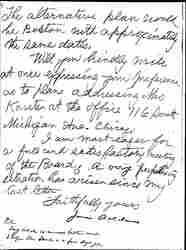 The alternative plan would
be Boston with approximately
the same dates.
Will you kindly write
at once expressing your preference
as to plans addressing Mrs
Karsten at the office 416 South
Michigan Ave. Chicago
I am most eager for
a full and satisfactory meeting
of the Board. A very perplexing
situation has arisen since my
last letter
Faithfully yours